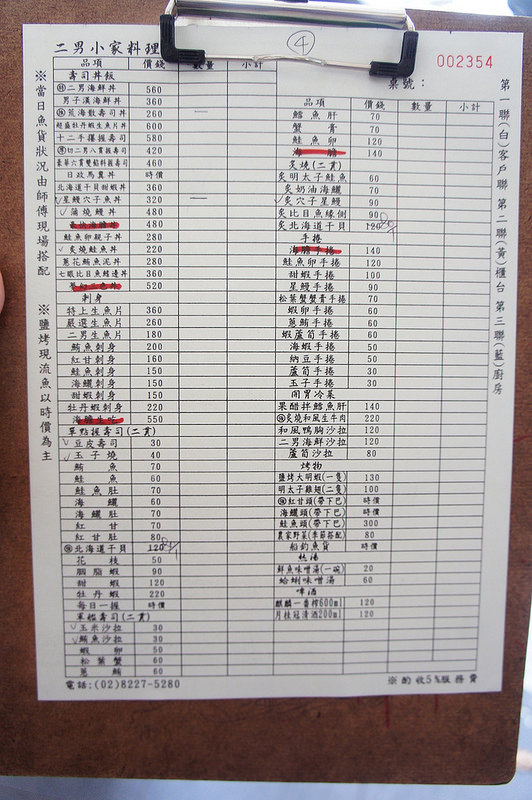 二男小家料理
④
002354
桌號：
品項 價錢 數量 小計
壽司丼飯
二男海鮮丼 560
男子漢海鮮丼 360
荒海散壽司丼 260
超盛牡丹蝦生魚片丼 600
十二手握握壽司 580
切二男八貫握壽司 420
豪華六貫雙餡料握壽司 460
日政馬糞丼 時價
北海道干貝甜蝦丼 360
星鰻穴子丼 320
蒲燒鰻丼 480
480
鮭魚卵親子丼 280
炙燒鮭魚丼 220
蔥花鮪魚泥丼 280
七眼比目魚鰭邊丼 360
520
刺身
特上生魚片 360
嚴選生魚片 260
二男生魚片 180
鮪魚刺身 200
紅甘刺身 160
鮭魚刺身 150
海鱺刺身 150
甜蝦刺身 150
牡丹蝦刺身 220
海膽生吃 550
單點握壽司(二貫)
豆皮壽司 30
玉子燒 40
鮪魚 70
鮭魚 60
鮭魚肚 70
海鱺 60
海鱺肚 70
紅甘 70
紅甘肚 80
北海道干貝 120
花枝 50
胭脂蝦 90
甜蝦 120
牡丹蝦 220
每日一握 時價
軍艦壽司(二貫)
玉米沙拉 30
鮪魚沙拉 30
蝦卵 50
松葉蟹 60
蔥鮪 60
電話:(02)8227-5280
品項 價錢 數量 小計
鱈魚肝 70
蟹膏 70
鮭魚卵 120
海膽 140
炙燒(二貫)
炙明太子鮭魚 60
炙奶油海鱺 70
炙穴子星鰻 90
炙比目魚緣側 90
炙北海道干貝 120
手捲
海膽手捲 140
鮭魚卵手捲 120
甜蝦手捲 100
星鰻手捲 90
松葉蟹蟹膏手捲 70
蝦卵手捲 60
蔥鮪手捲 60
蝦蘆筍手捲 60
海蝦手捲 50
納豆手捲 50
蘆筍手捲 30
玉子手捲 30
開胃冷菜
果醋拌鱈魚肝 140
炙燒和風生牛肉 220
和風鴨胸沙拉 120
二男海鮮沙拉 120
蘆筍沙拉 80
烤物
鹽烤大明蝦(一隻) 130
明太子雞翅(二隻) 100
紅甘頭(帶下巴) 時價
海鱺頭(帶下巴) 時價
鮭魚頭(帶下巴) 300
農家野菜(季節搭配) 80
船釣魚貨 時價
熱湯
鮮魚味噌湯(一碗) 20
蛤蜊味噌湯 60
啤酒
麒麟一番榨600ml 120
月桂冠清酒200ml 120
※酌收5%服務費
※當日魚貨狀況由師傅現場搭配 ※鹽烤現流魚以時價為主
第一聯(白)客戶聯 第二聯(黃)櫃台 第三聯(藍)廚房